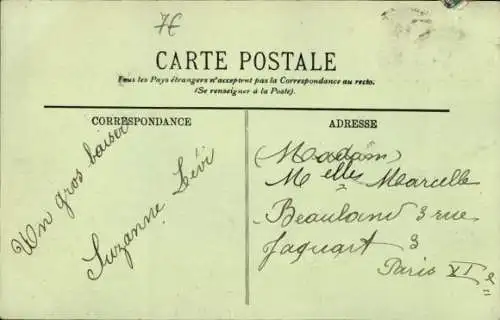 7€
CARTE POSTALE
Tous les Pays étrangers n'acceptent pas la Correspondance au recto.
(Se renseigner à la Poste).
CORRESPONDANCE
Un gros baiser
Suzanne Lévi
ADRESSE
(Madam)
Melle Marcelle
Beauland 3 rue
Jaquart 3
Paris XIe